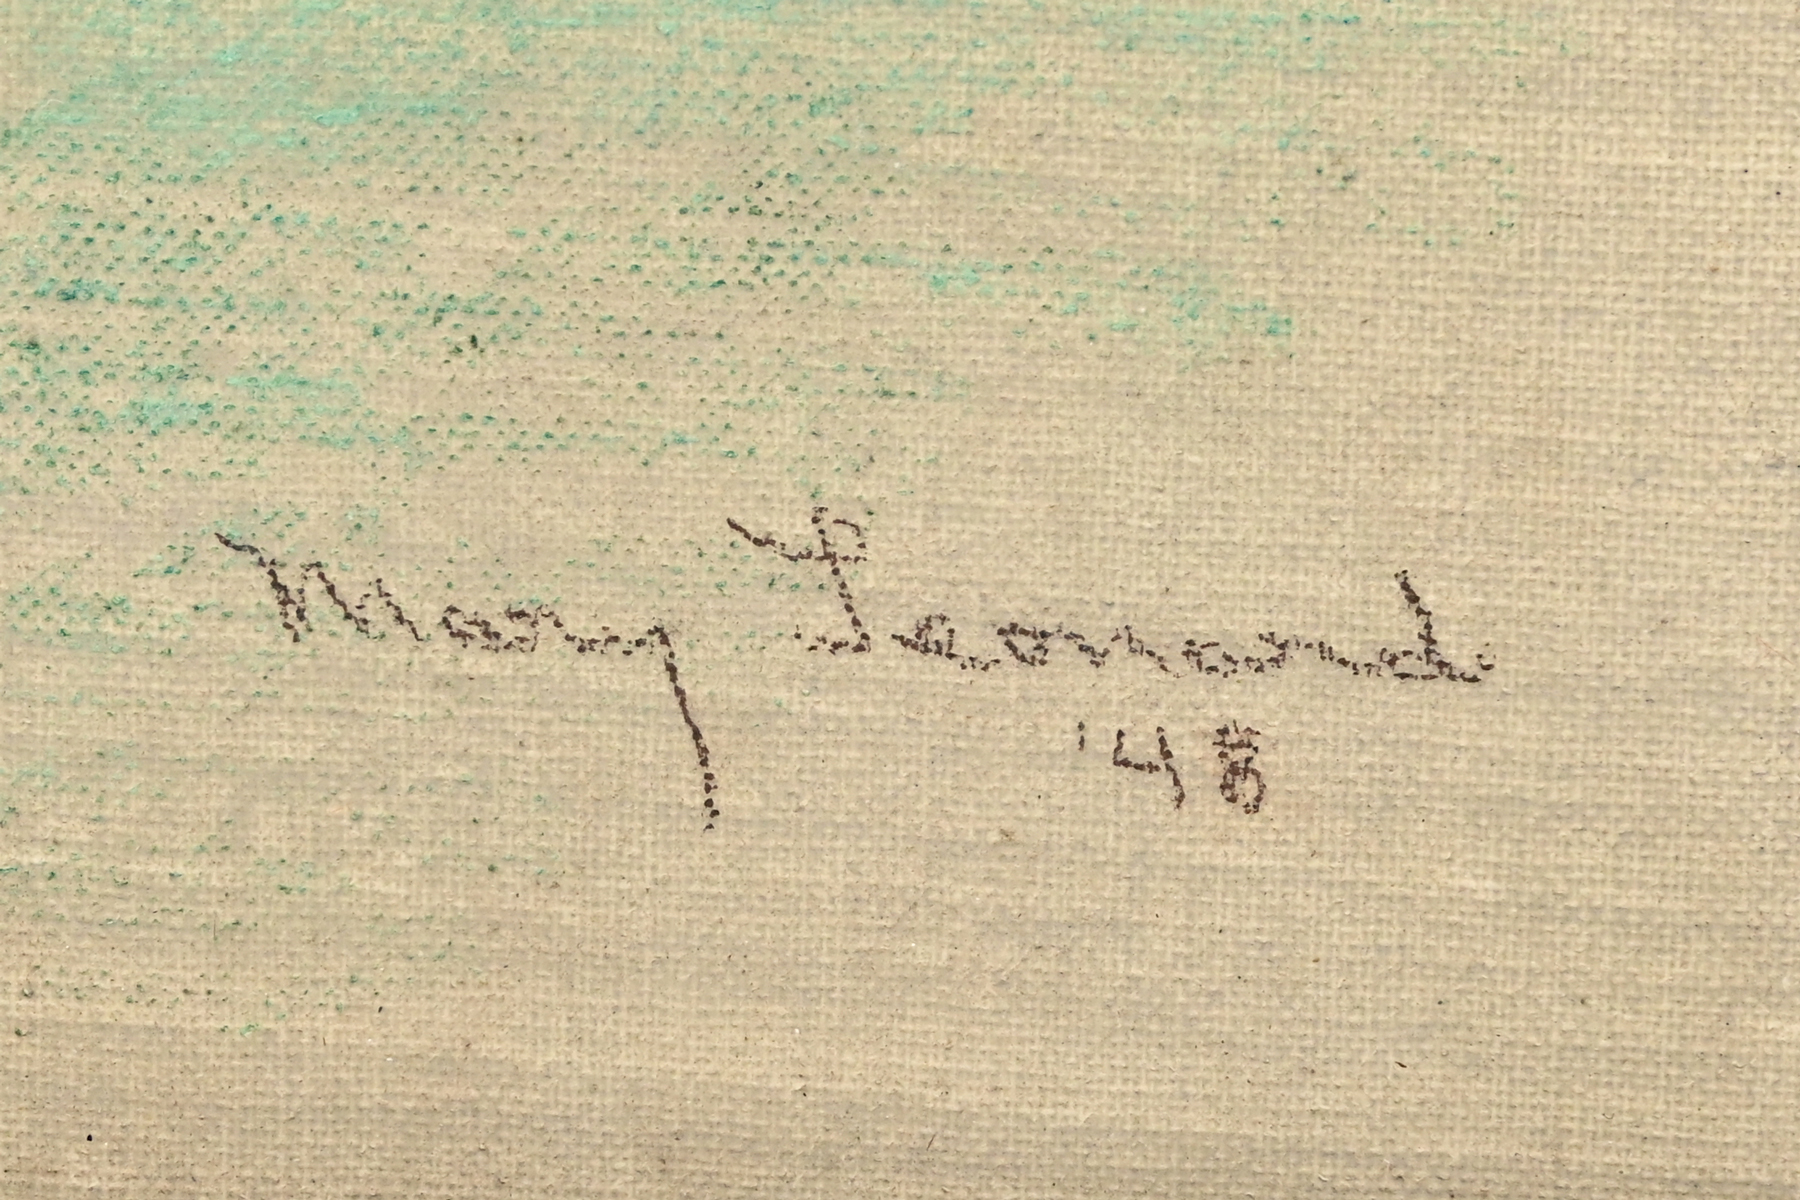 Mary Leonard
'48